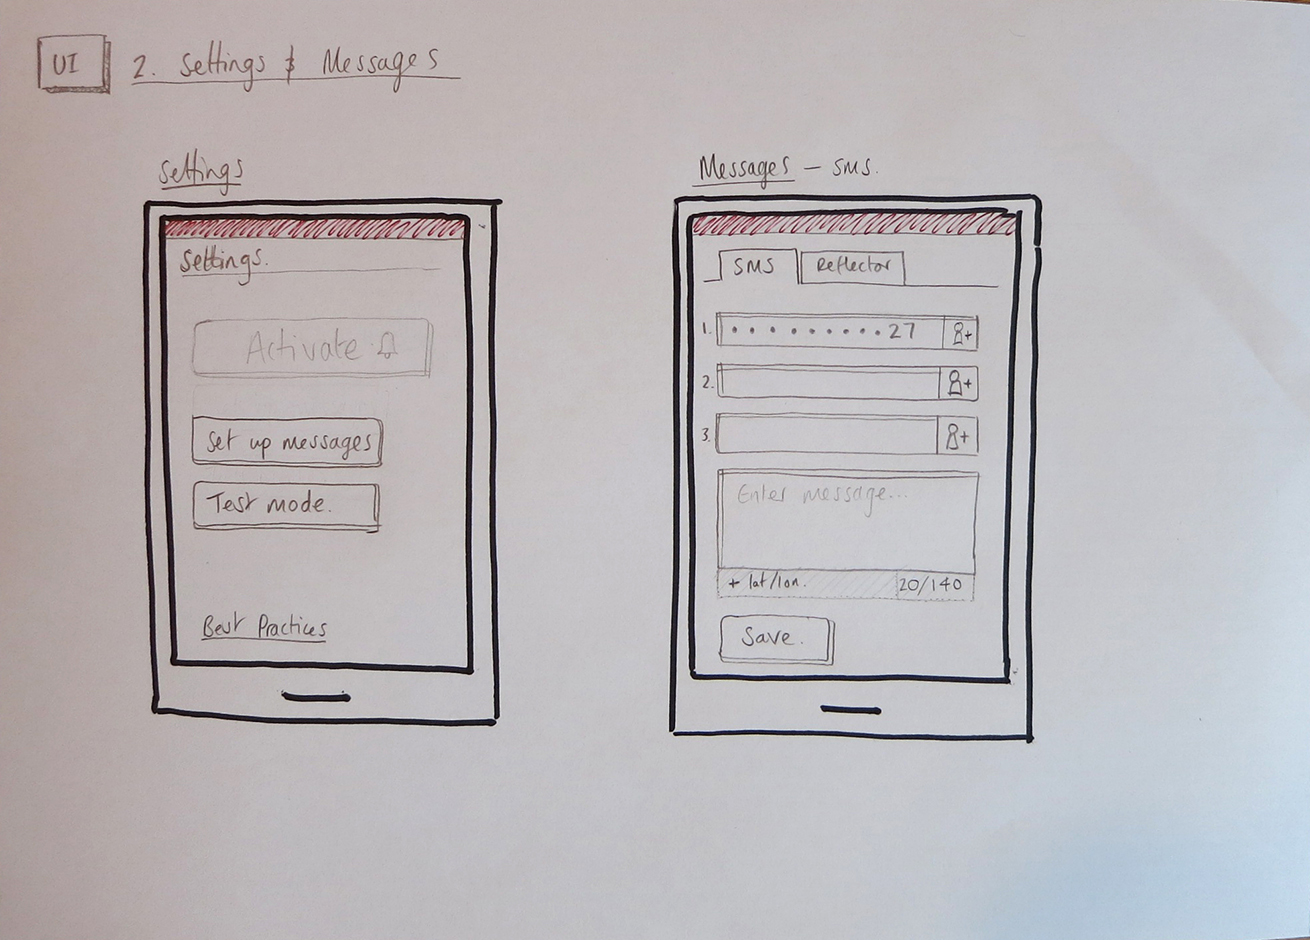 UI
2. Settings & Messages
Settings
Settings.
Activate
Set up messages
Test mode.
Best Practices
Messages - SMS.
SMS
Reflector
1. • • • • • • • • • 27 +
2. +
3. +
Enter message...
+ lat/lon. 20/140
Save.